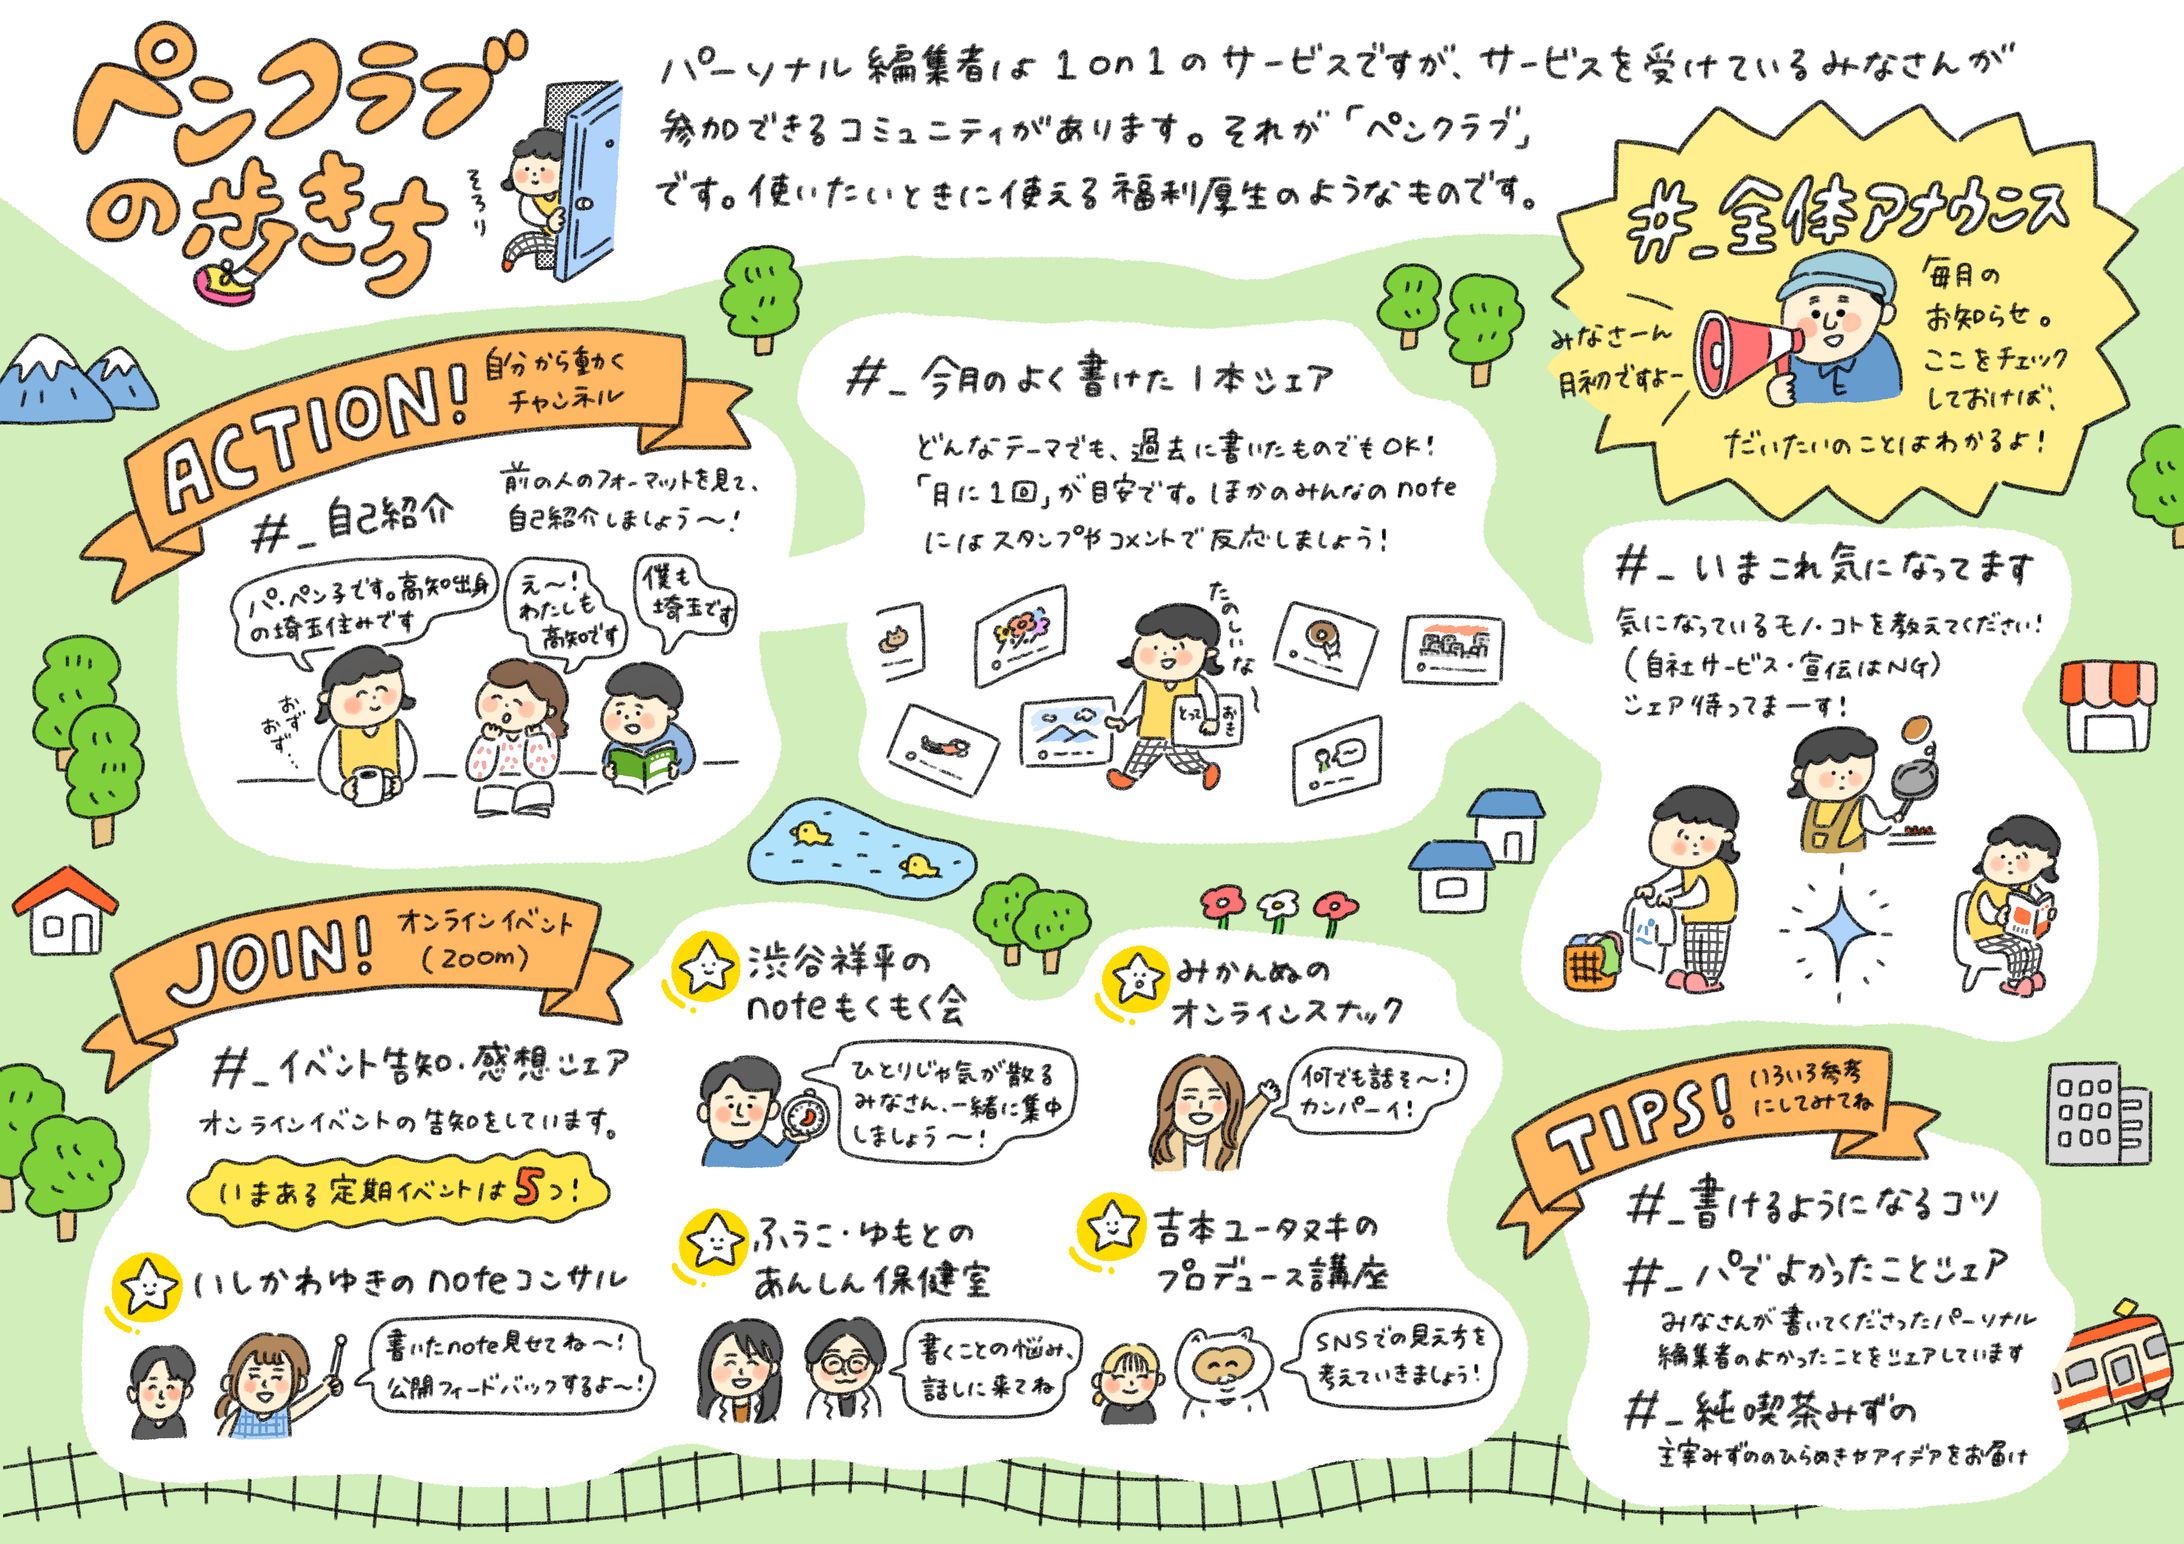 ペンクラブ
の歩き方
そろり
パーソナル編集者は1on1のサービスですが、サービスを受けているみなさんが
参加できるコミュニティがあります。それが「ペンクラブ」
です。使いたいときに使える福利厚生のようなものです。
#_全体アナウンス
毎月の
お知らせ。
ここをチェック
しておけば、
だいたいのことはわかるよ!
みなさーん
月初ですよー
ACTION!
自分から動く
チャンネル
#_自己紹介
前の人のフォーマットを見て、
自己紹介しましょう〜!
パ・ペン子です。高知出身
の埼玉住みです
え〜!
わたしも
高知です
僕も
埼玉です
おず
おず…
#_今月のよく書けた1本シェア
どんなテーマでも、過去に書いたものでもOK!
「月に1回」が目安です。ほかのみんなのnote
にはスタンプやコメントで反応しましょう!
たのしいな〜
とって
おき
#_いまこれ気になってます
気になっているモノ・コトを教えてください!
(自社サービス・宣伝はNG)
シェア待ってまーす!
JOIN!
オンラインイベント
(zoom)
#_イベント告知・感想シェア
オンラインイベントの告知をしています。
いまある定期イベントは5つ!
いしかわゆきのnoteコンサル
書いたnote見せてね〜!
公開フィードバックするよ〜!
渋谷祥平の
noteもくもく会
ひとりじゃ気が散る
みなさん、一緒に集中
しましょう〜!
みかんぬの
オンラインスナック
何でも話そ〜!
カンパーイ!
ふうこ・ゆもとの
あんしん保健室
書くことの悩み、
話しに来てね
吉本ユータヌキの
プロデュース講座
SNSでの見え方を
考えていきましょう!
TIPS!
いろいろ参考
にしてみてね
#_書けるようになるコツ
#_パでよかったことシェア
みなさんが書いてくださったパーソナル
編集者のよかったことをシェアしています
#_純喫茶みずの
主宰みずののひらめきやアイデアをお届け